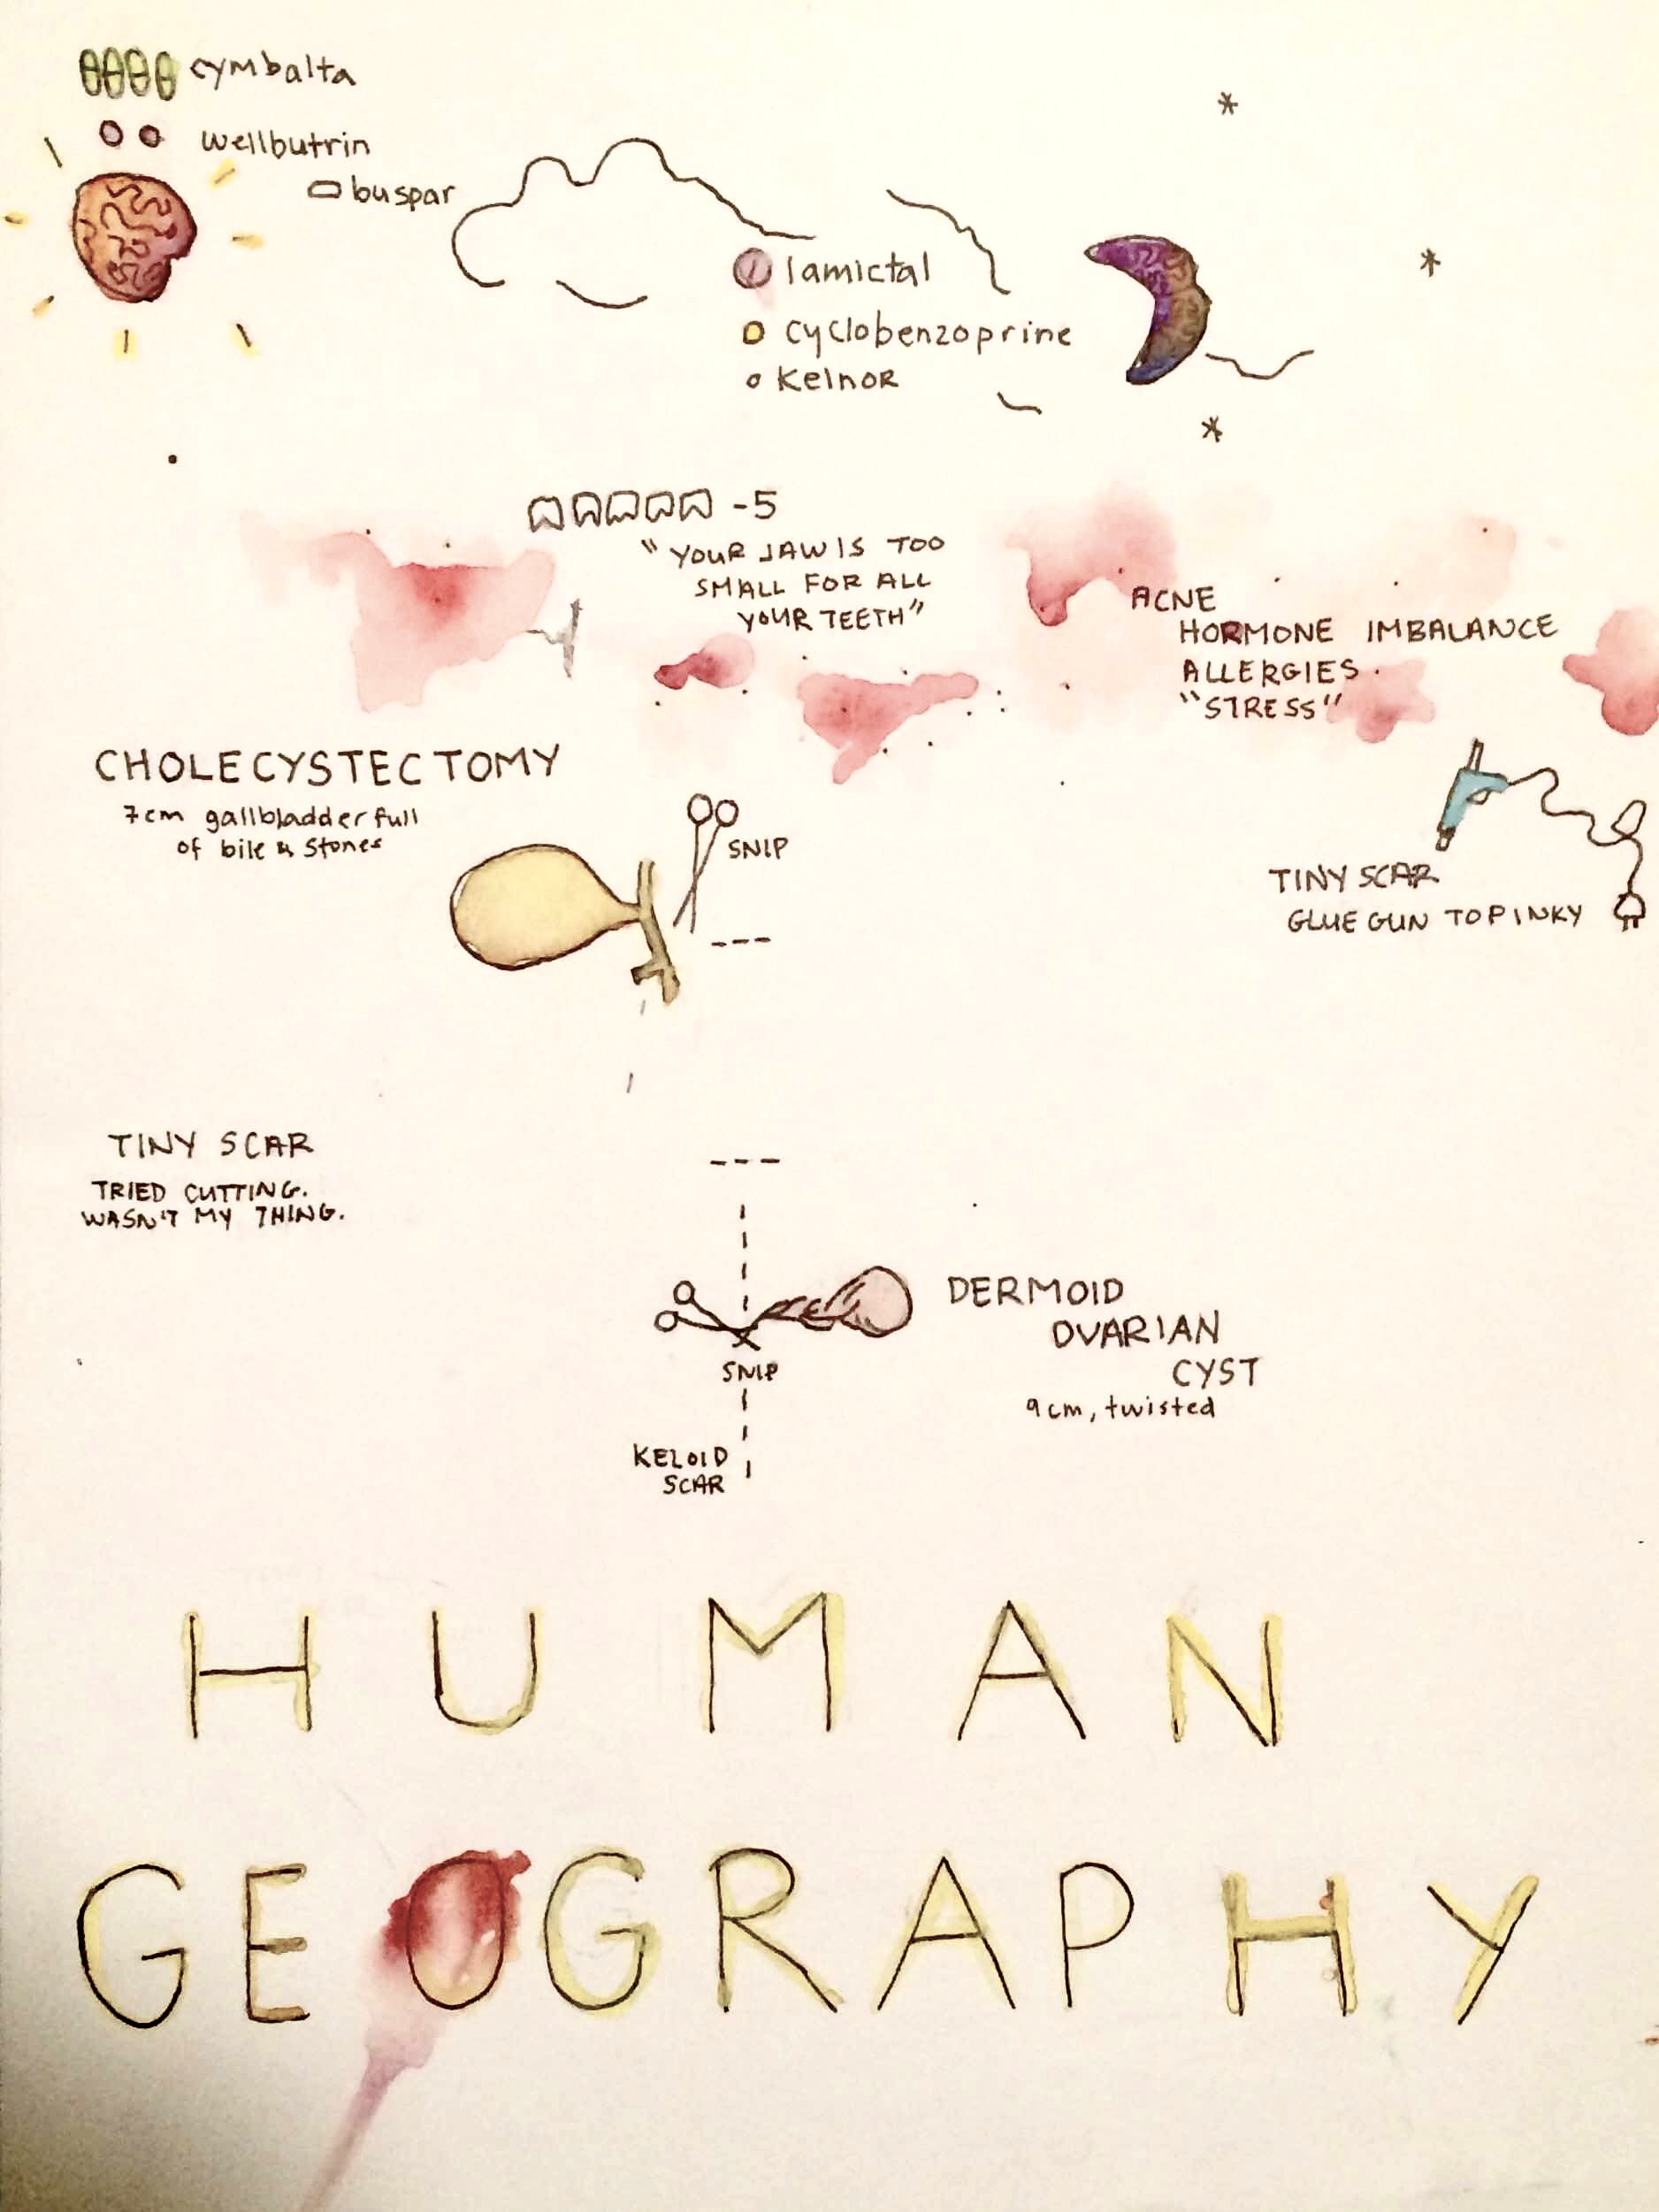 cymbalta
wellbutrin
buspar
lamictal
cyclobenzoprine
KelnoR
-5
"YOUR JAW IS TOO
SMALL FOR ALL
YOUR TEETH"
ACNE
HORMONE IMBALANCE
ALLERGIES
"STRESS"
CHOLECYSTECTOMY
7cm gallbladder full
of bile & stones
SNIP
TINY SCAR
GLUE GUN TO PINKY
TINY SCAR
TRIED CUTTING.
WASN'T MY THING.
SNIP
DERMOID
OVARIAN
CYST
9cm, twisted
KELOID
SCAR
HUMAN
GEOGRAPHY